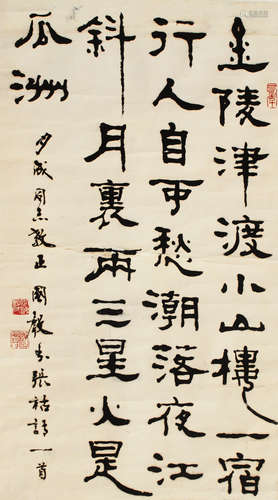 金陵津渡小山樓一宿
行人自可愁潮落夜江
斜月裏兩三星火是
瓜洲
同志教正 國 書張祜詩一首